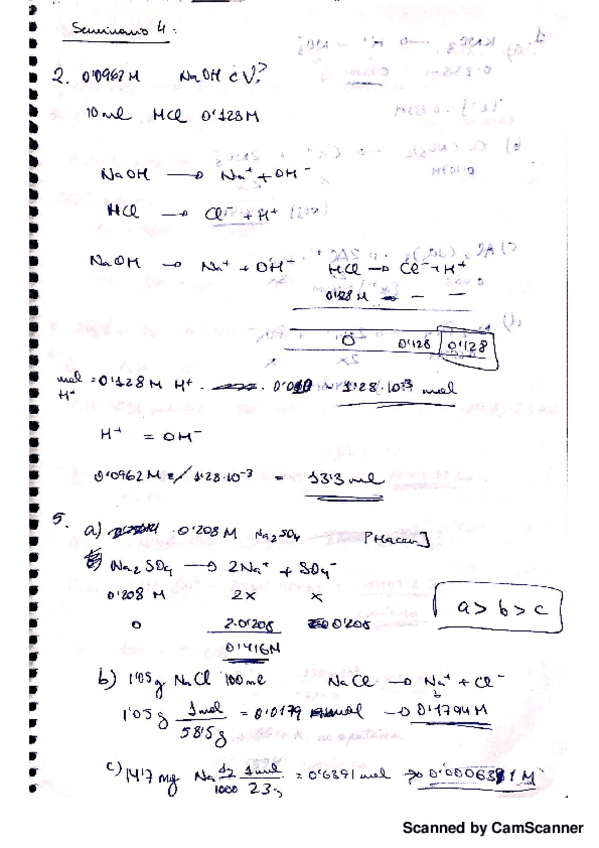 Seminario 4:
2. 0'0962 M NaOH c V?
10 ml HCl 0'128 M
NaOH → Na⁺ + OH⁻
HCl → Cl⁻ + H⁺
NaOH → Na⁺ + OH⁻ HCl → Cl⁻ + H⁺
0'128 M — —
0 0'128 0'128
mol H⁺ = 0'128 M H⁺ · 0'010 = 1'28·10⁻³ mol
H⁺ = OH⁻
0'0962 M 1'28·10⁻³ = 13'3 ml
5. a) 0'208 M Na₂SO₄
Na₂SO₄ → 2Na⁺ + SO₄⁻
0'208 M 2x x
0 2·0'208 0'208
0'416 M
a > b > c
b) 1'05 g NaCl 100 ml NaCl → Na⁺ + Cl⁻
1'05 g 1 mol / 58'5 g = 0'0179 mol → 0'1794 M
c) 14'7 mg Na 1 g / 1000 1 mol / 23 g = 0'6391 mol → 0'0006391 M
Scanned by CamScanner